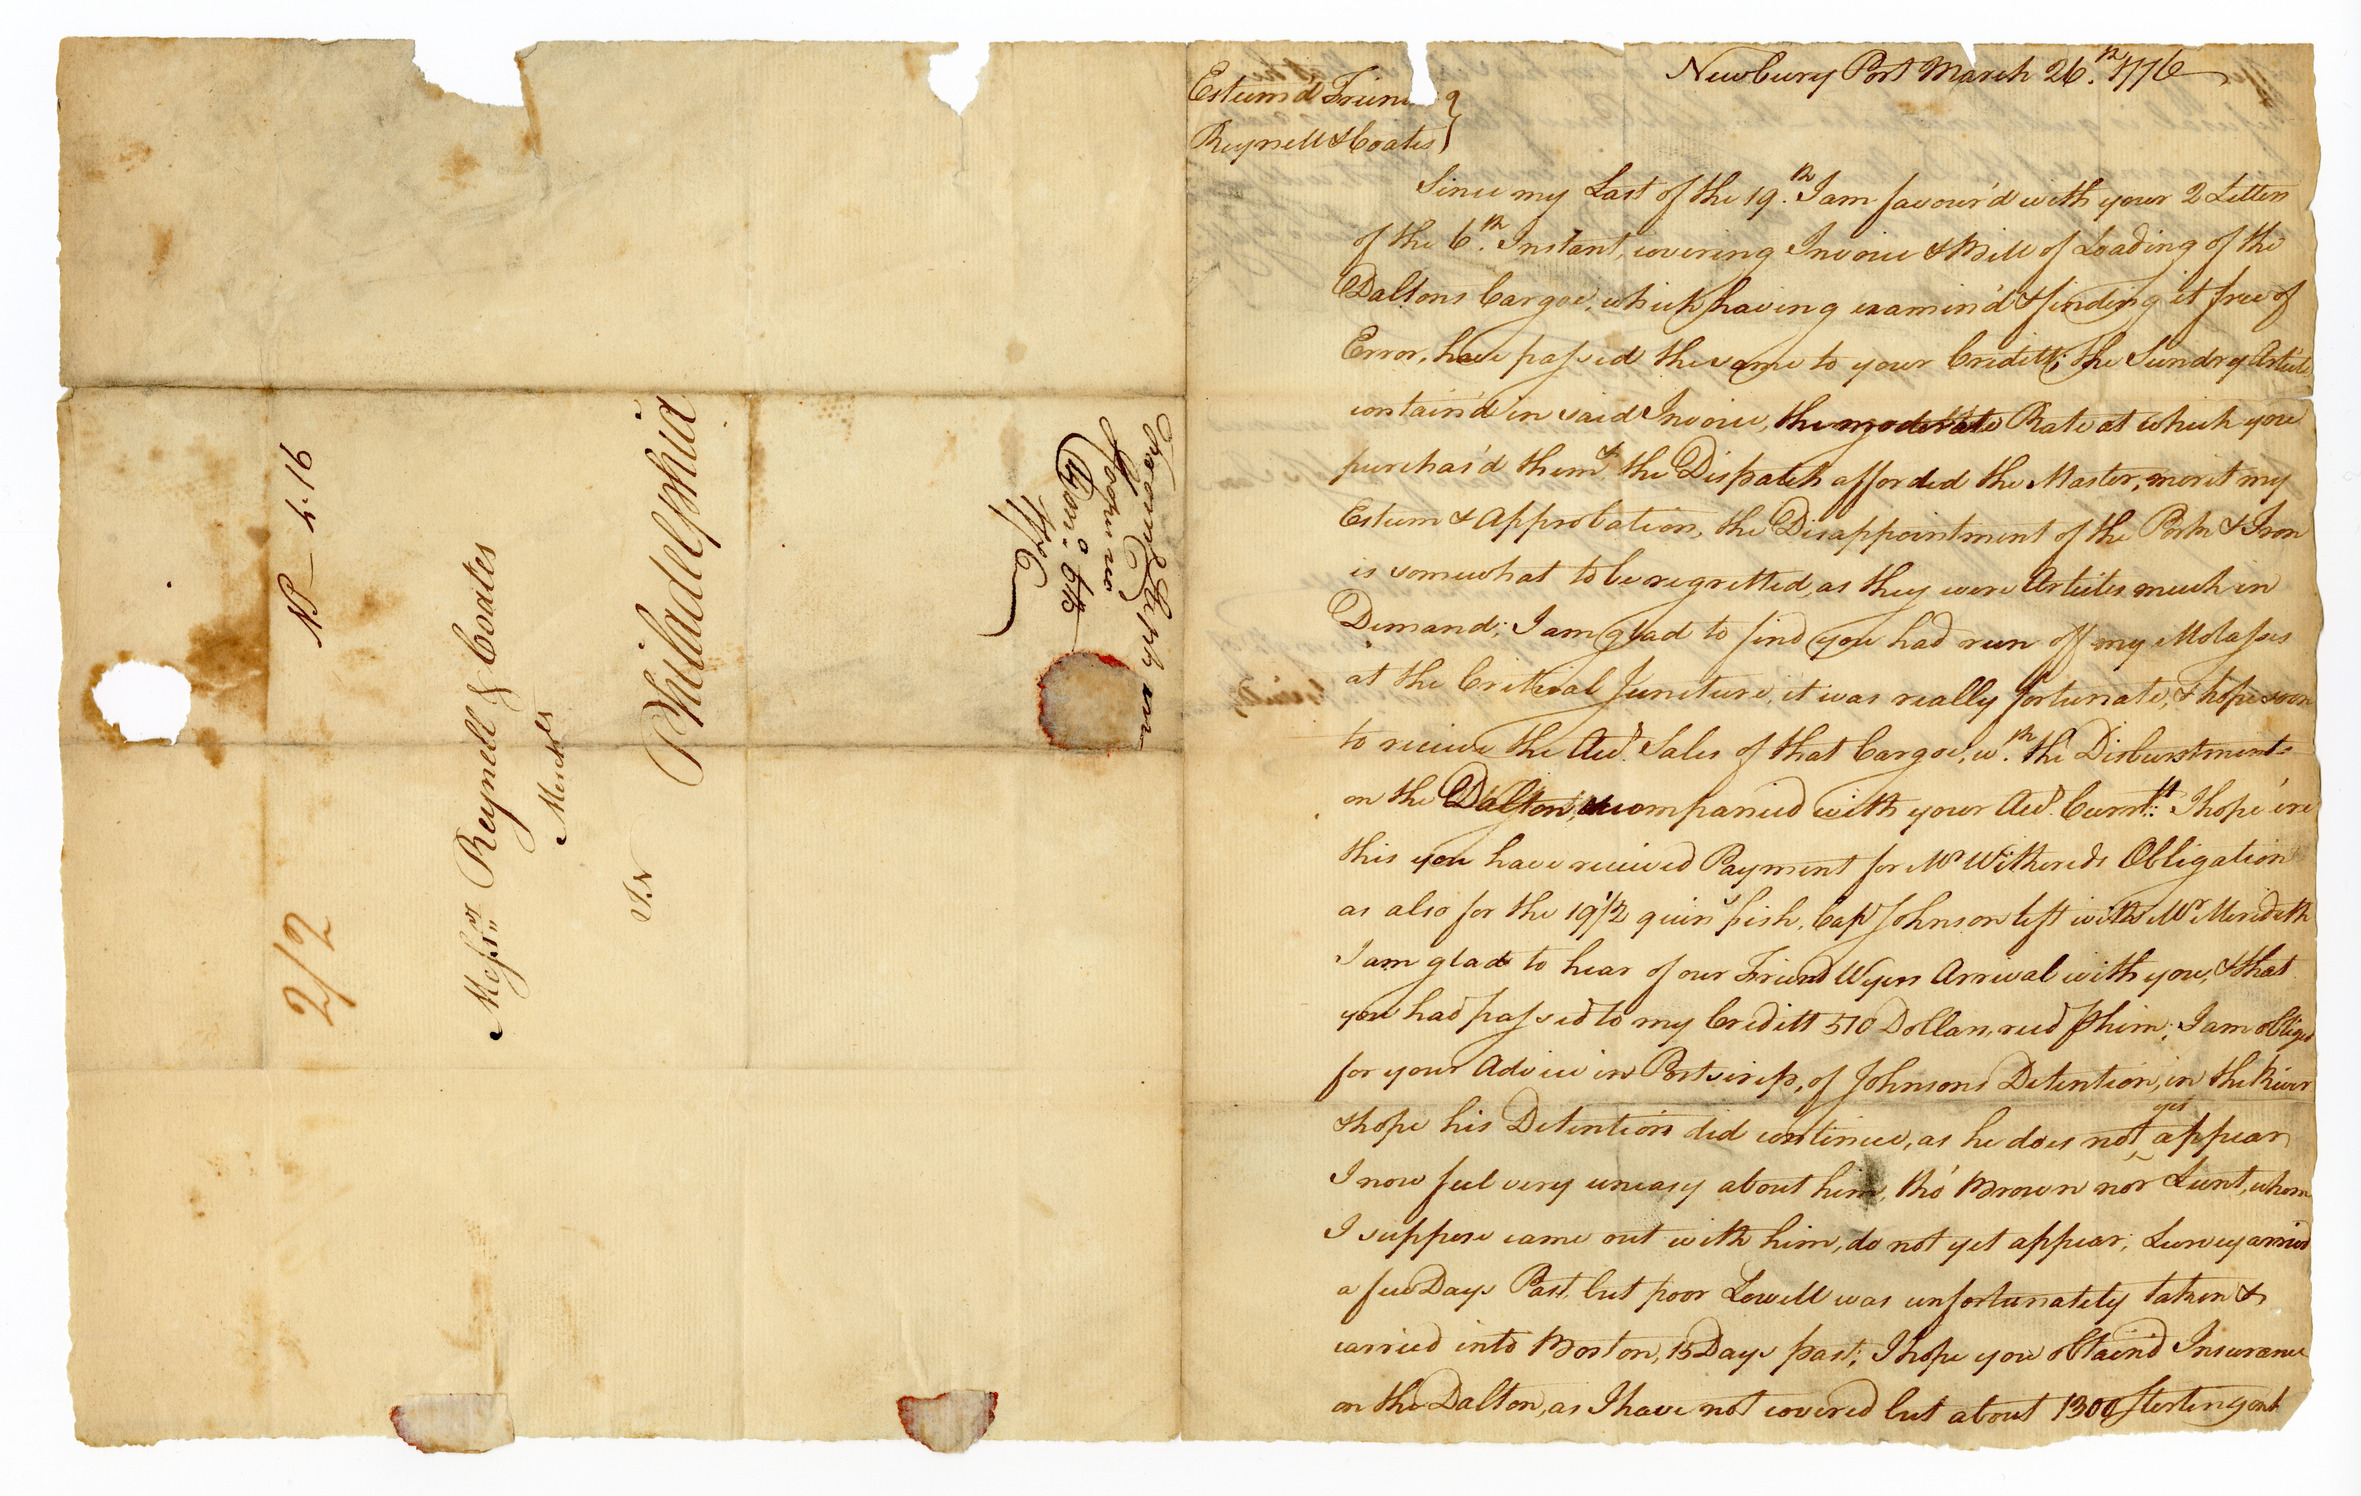 NP— 4:16
2/2
Messrs. Reynell & Coates
Merchts
In
Philadelphia
1776
Newbury Port March 26.th 1776
Esteem'd Frien
Reynell & Coates
Since my Last of the 19.th I am favour'd with your 2 Letters
of the 6.th Instant, covering Invoice & Bill of Loading of the
Daltons Cargoe, which having examin'd & finding it free of
Error, have passed the same to your Creditt; the Sundry Article
contain'd in said Invoice, the moderate Rate at which you
purchas'd them & the Dispatch afforded the Master, merit my
Esteem & Approbation, the Disappointment of the Pork & Iron
is somewhat to be regretted, as they were Articles much in
Demand; I am glad to find you had run off my Molasses
at the Critical Juncture, it was really fortunate, & hope soon
to receive the Acct. Sales of that Cargoe, wth. the Disburstments
on the Dalton, accompanied with your Acct. Currtt: I hope 'ere
this you have received Payment for Mr Withereds Obligation
as also for the 19 1/2 quins fish, Capt Johnson left with Mr Meredith
I am glad to hear of our Friend Wyers Arrival with you, & that
you had passed to my Creditt 510 Dollars, recd ℘ him; I am obliged
for your Advice in Postscrip, of Johnsons Detention, in the River
& hope his Detention did continue, as he does not yet appear
I now feel very uneasy about him, tho' Brown nor Lunt, whom
I suppose came out with him, do not yet appear; Lurvey arrived
a few Days Past, but poor Lowell was unfortunately taken &
carried into Boston, 15 Days past; I hope you obtain'd Insurance
on the Dalton, as I have not covered but about 1300 Sterling on